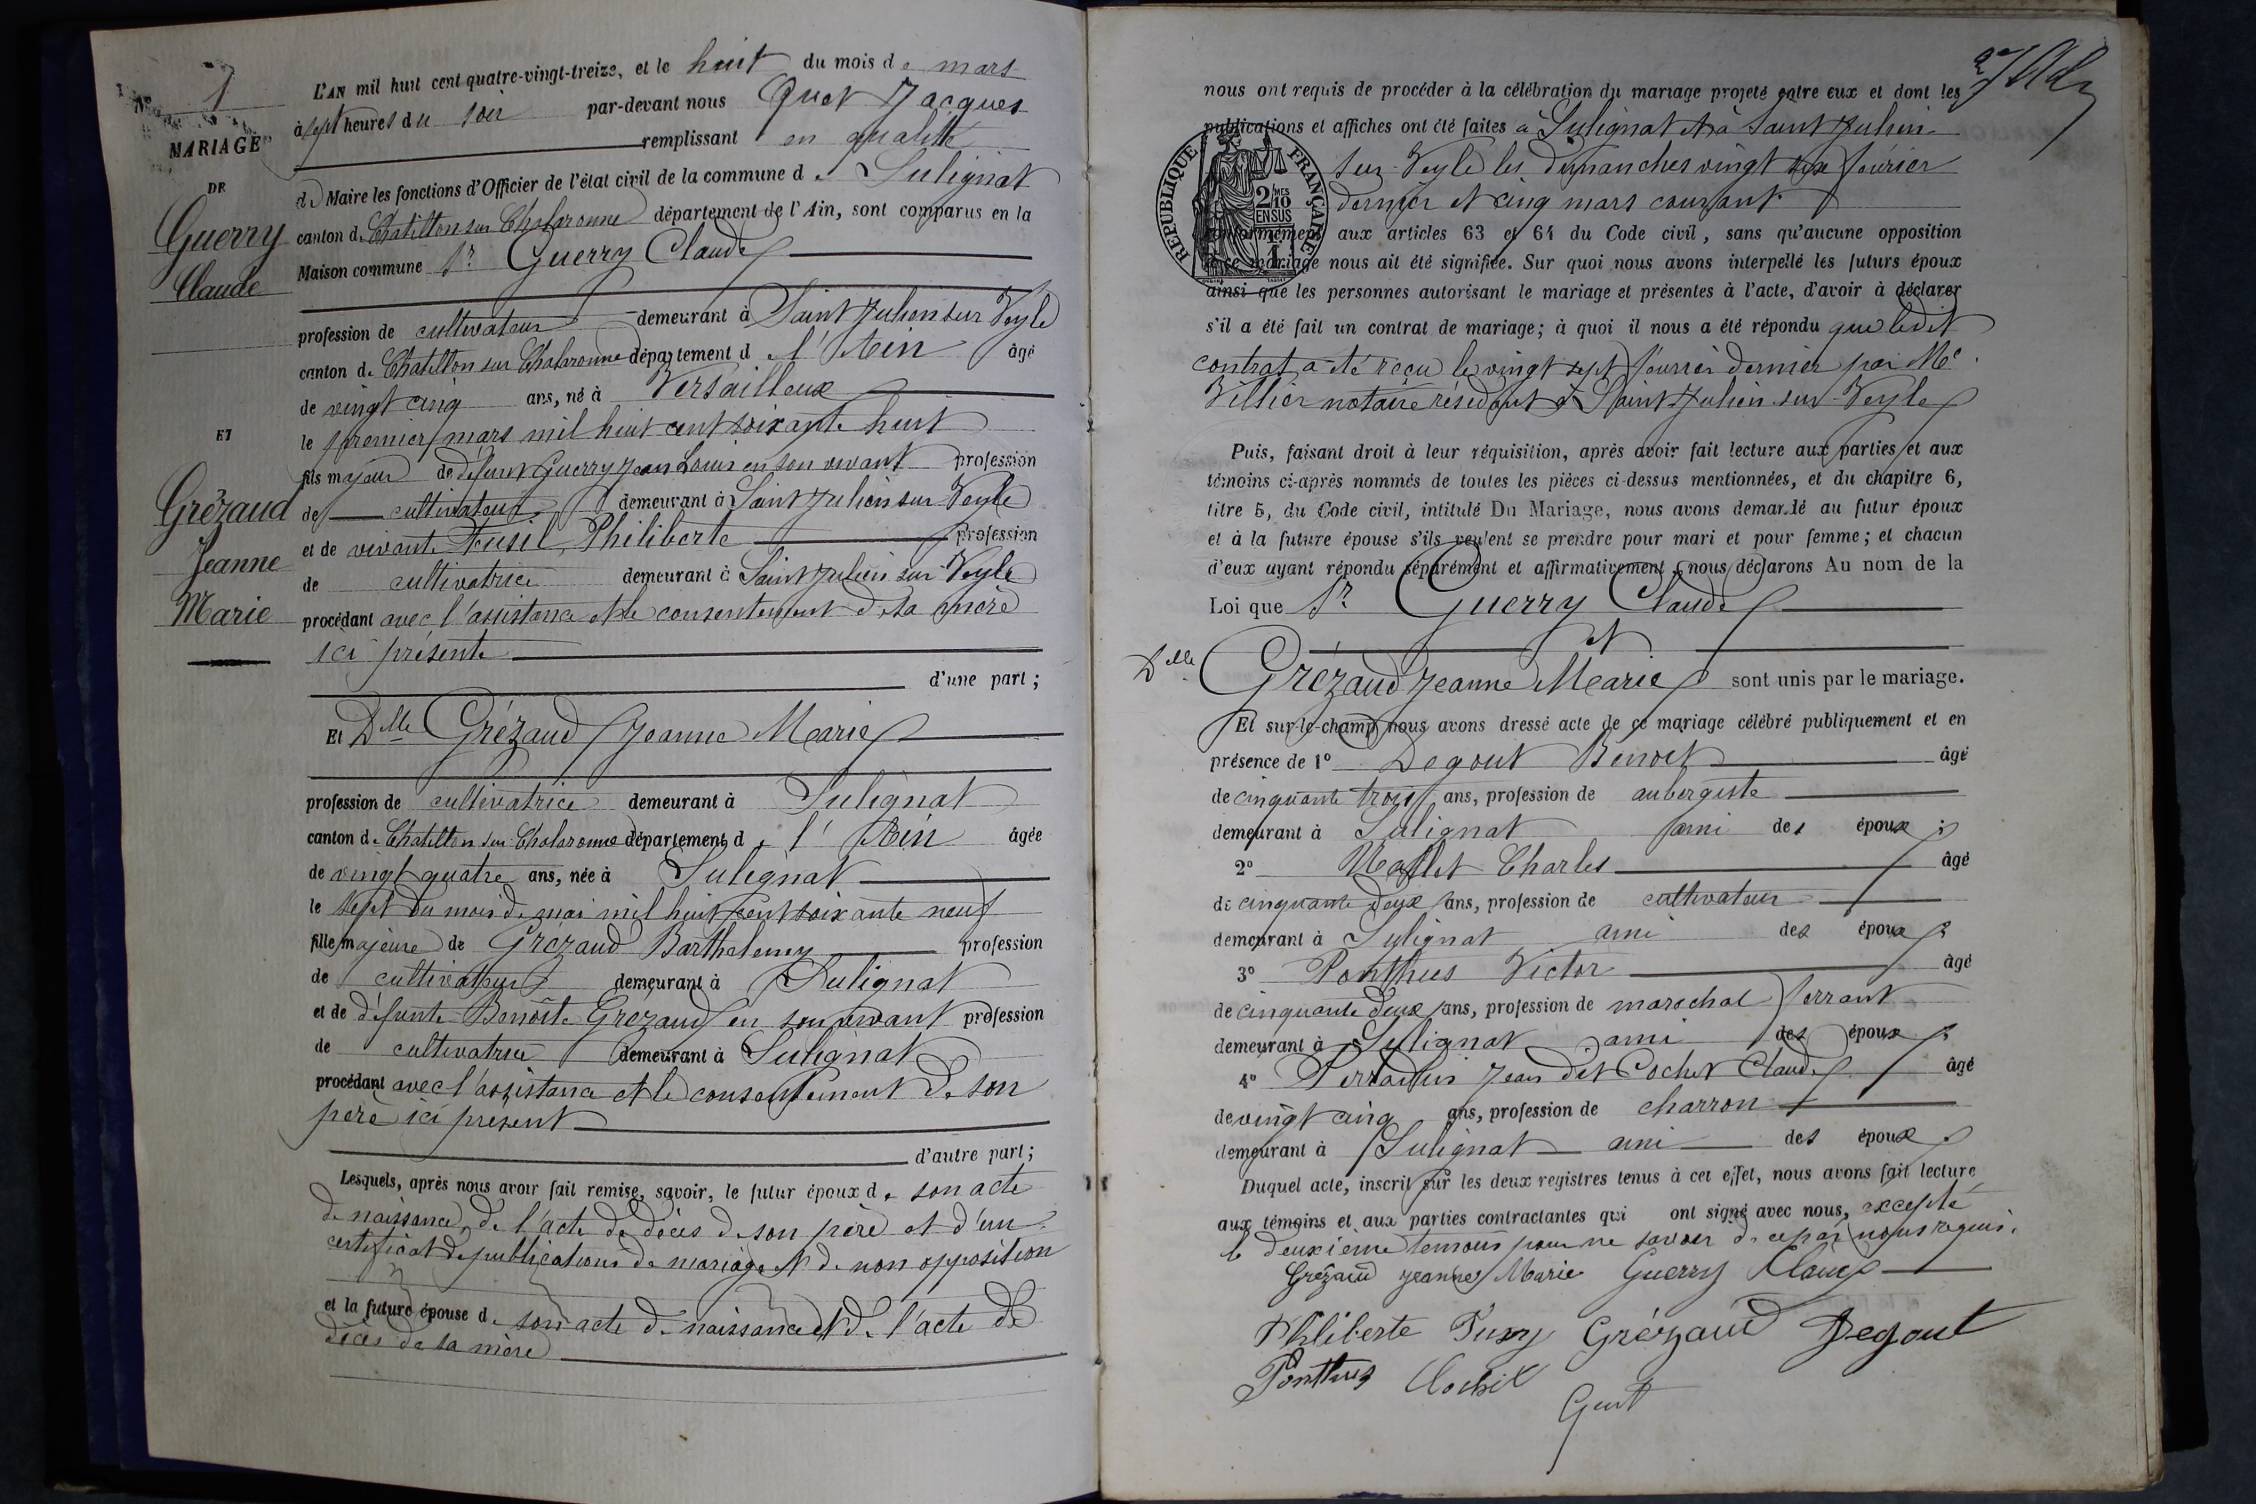 No 1
MARIAGE
DE
Guerry
Claude
ET
Grézaud
Jeanne
Marie
L'AN mil huit cent quatre-vingt-treize, et le huit du mois de mars
à sept heures du soir par-devant nous Quet Jacques
remplissant en qualité
de Maire les fonctions d'Officier de l'état civil de la commune de Sulignat
canton de Chatillon sur Chalaronne département de l'Ain, sont comparus en la
Maison commune Sr Guerry Claude
profession de cultivateur demeurant à Saint Julien sur Veyle
canton de Chatillon sur Chalaronne département de l'Ain âgé
de vingt cinq ans, né à Versailleux
le premier mars mil huit cent soixante huit
fils majeur de défunt Guerry Jean Louis en son vivant profession
de cultivateur demeurant à Saint Julien sur Veyle
et de vivante Fusil Philiberte profession
de cultivatrice demeurant à Saint Julien sur Veyle
procédant avec l'assistance et le consentement de sa mère
ici présente
d'une part;
Et Dlle Grézaud Jeanne Marie
profession de cultivatrice demeurant à Sulignat
canton de Chatillon sur Chalaronne département de l'Ain âgée
de vingt quatre ans, née à Sulignat
le sept du mois de mai mil huit cent soixante neuf
fille majeure de Grézaud Barthelemy profession
de cultivateur demeurant à Sulignat
et de défunte Benoîte Grézaud en son vivant profession
de cultivatrice demeurant à Sulignat
procédant avec l'assistance et le consentement de son
père ici présent
d'autre part;
Lesquels, après nous avoir fait remise, savoir, le futur époux de son acte
de naissance, de l'acte de décès de son père et d'un
certificat de publications de mariage et de non opposition
et la future épouse de son acte de naissance et de l'acte de
décès de sa mère
nous ont requis de procéder à la célébration du mariage projeté entre eux et dont les
publications et affiches ont été faites à Sulignat et à Saint Julien
sur Veyle les dimanches vingt six février
dernier et cinq mars courant
conformément aux articles 63 et 64 du Code civil, sans qu'aucune opposition
à ce mariage nous ait été signifiée. Sur quoi nous avons interpellé les futurs époux
ainsi que les personnes autorisant le mariage et présentes à l'acte, d'avoir à déclarer
s'il a été fait un contrat de mariage; à quoi il nous a été répondu que ledit
contrat a été reçu le vingt sept février dernier par Me
Villier notaire résidant à Saint Julien sur Veyle
RÉPUBLIQUE FRANÇAISE
2 MES
10
EN SUS
1F
Puis, faisant droit à leur réquisition, après avoir fait lecture aux parties et aux
témoins ci-après nommés de toutes les pièces ci-dessus mentionnées, et du chapitre 6,
titre 5, du Code civil, intitulé Du Mariage, nous avons demandé au futur époux
et à la future épouse s'ils veulent se prendre pour mari et pour femme; et chacun
d'eux ayant répondu séparément et affirmativement, nous déclarons Au nom de la
Loi que Sr Guerry Claude
et
Dlle Grézaud Jeanne Marie sont unis par le mariage.
Et sur-le-champ nous avons dressé acte de ce mariage célébré publiquement et en
présence de 1º Degout Benoit âgé
de cinquante trois ans, profession de aubergiste
demeurant à Sulignat ami des époux;
2º Mallet Charles âgé
de cinquante deux ans, profession de cultivateur
demeurant à Sulignat ami des époux;
3º Ponthus Victor âgé
de cinquante deux ans, profession de marechal ferrant
demeurant à Sulignat ami des époux;
4º Jean dit Cochet Claude âgé
de vingt cinq ans, profession de charron
demeurant à Sulignat ami des époux
Duquel acte, inscrit sur les deux registres tenus à cet effet, nous avons fait lecture
aux témoins et aux parties contractantes qui ont signé avec nous, excepté
le deuxième temoin pour ne savoir de ce par nous requis.
Grézaud Jeanne Marie Guerry Claude
Philiberte Grézaud Degout
Ponthus Cochet
Quet